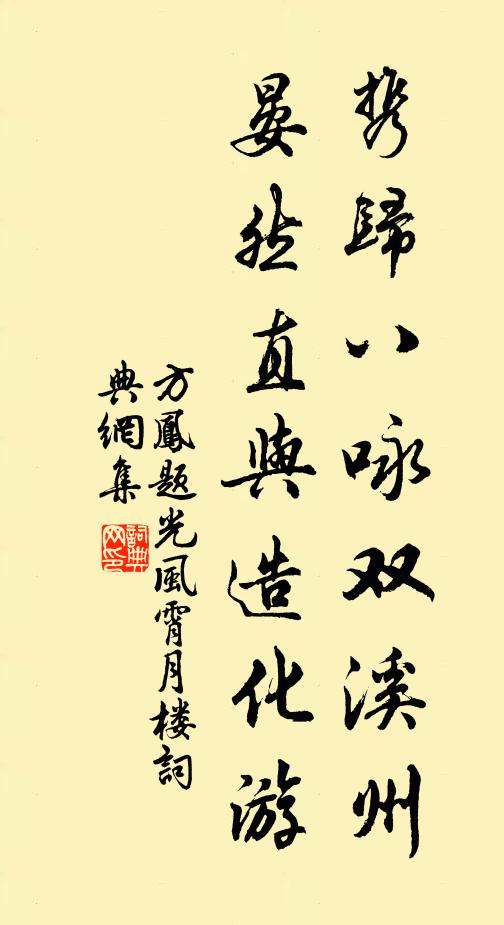 携歸八咏双溪州
晏然直與造化游
方鳳題光風霄月楼詞
典網集
詞典
网印